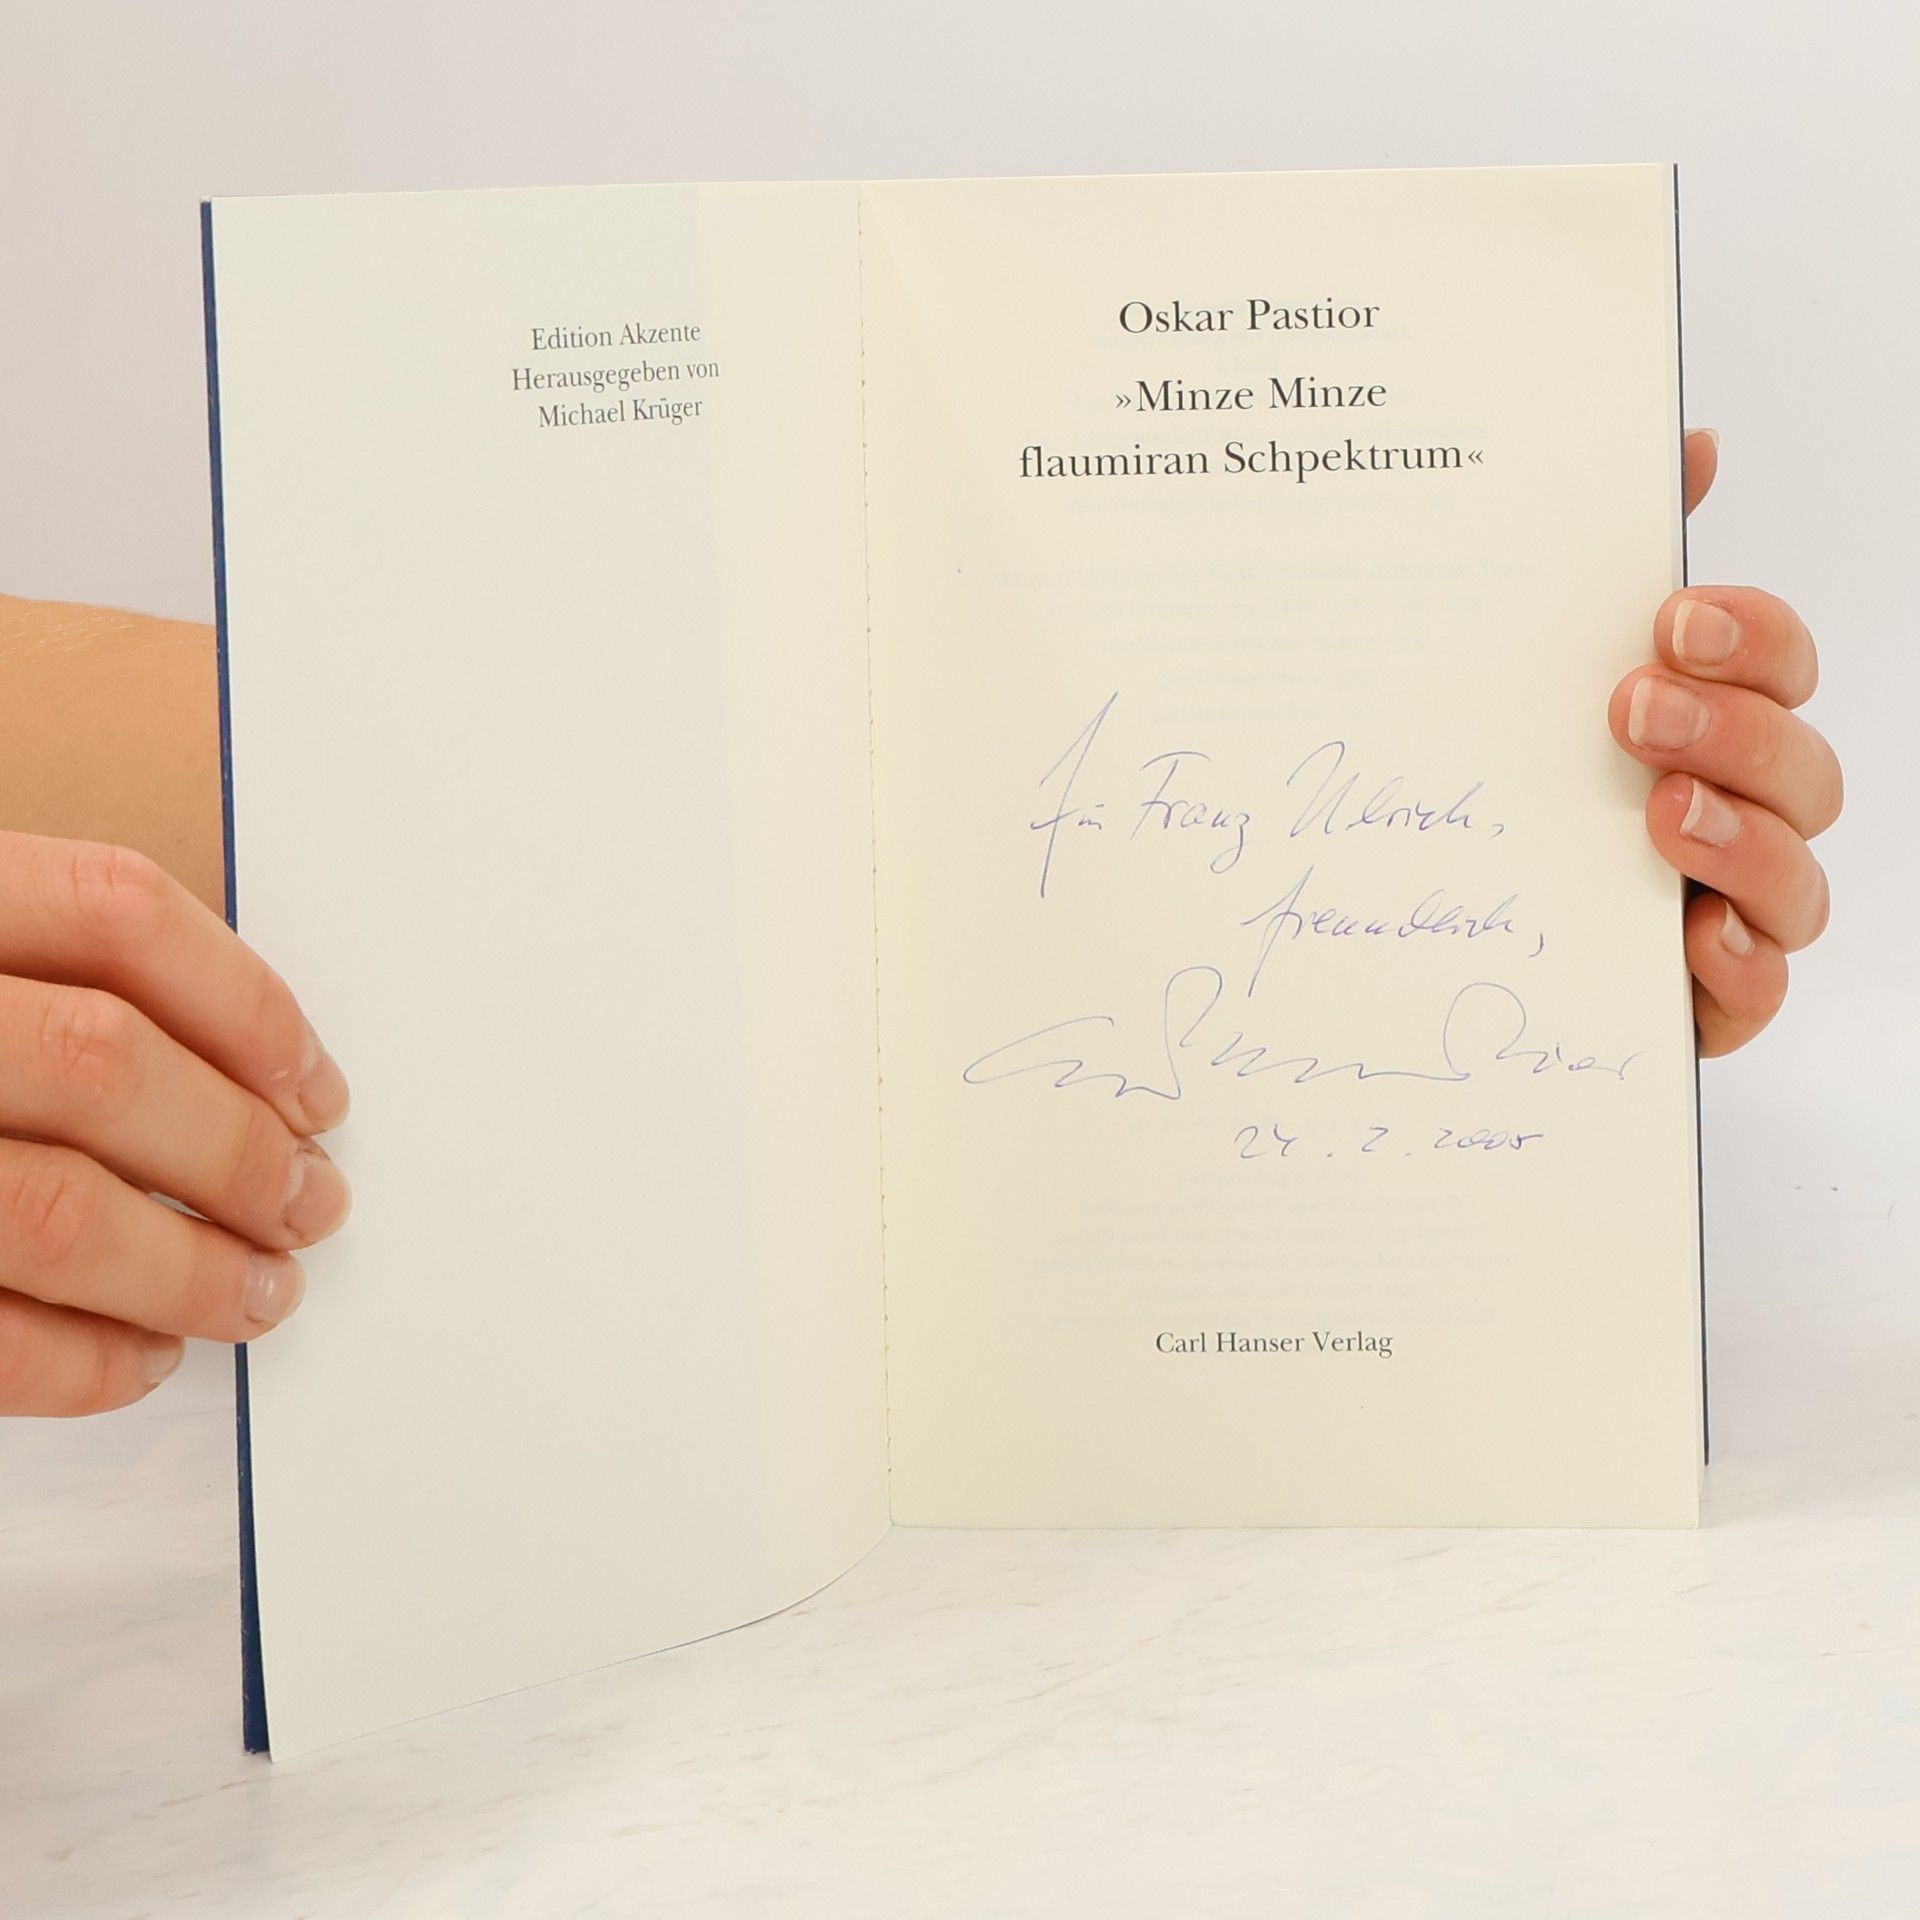 Edition Akzente
Herausgegeben von
Michael Krüger
Oskar Pastior
»Minze Minze
flaumiran Schpektrum«
Für Franz Ulrich,
freundlich,
Oskar Pastior
24. 2. 2005
Carl Hanser Verlag